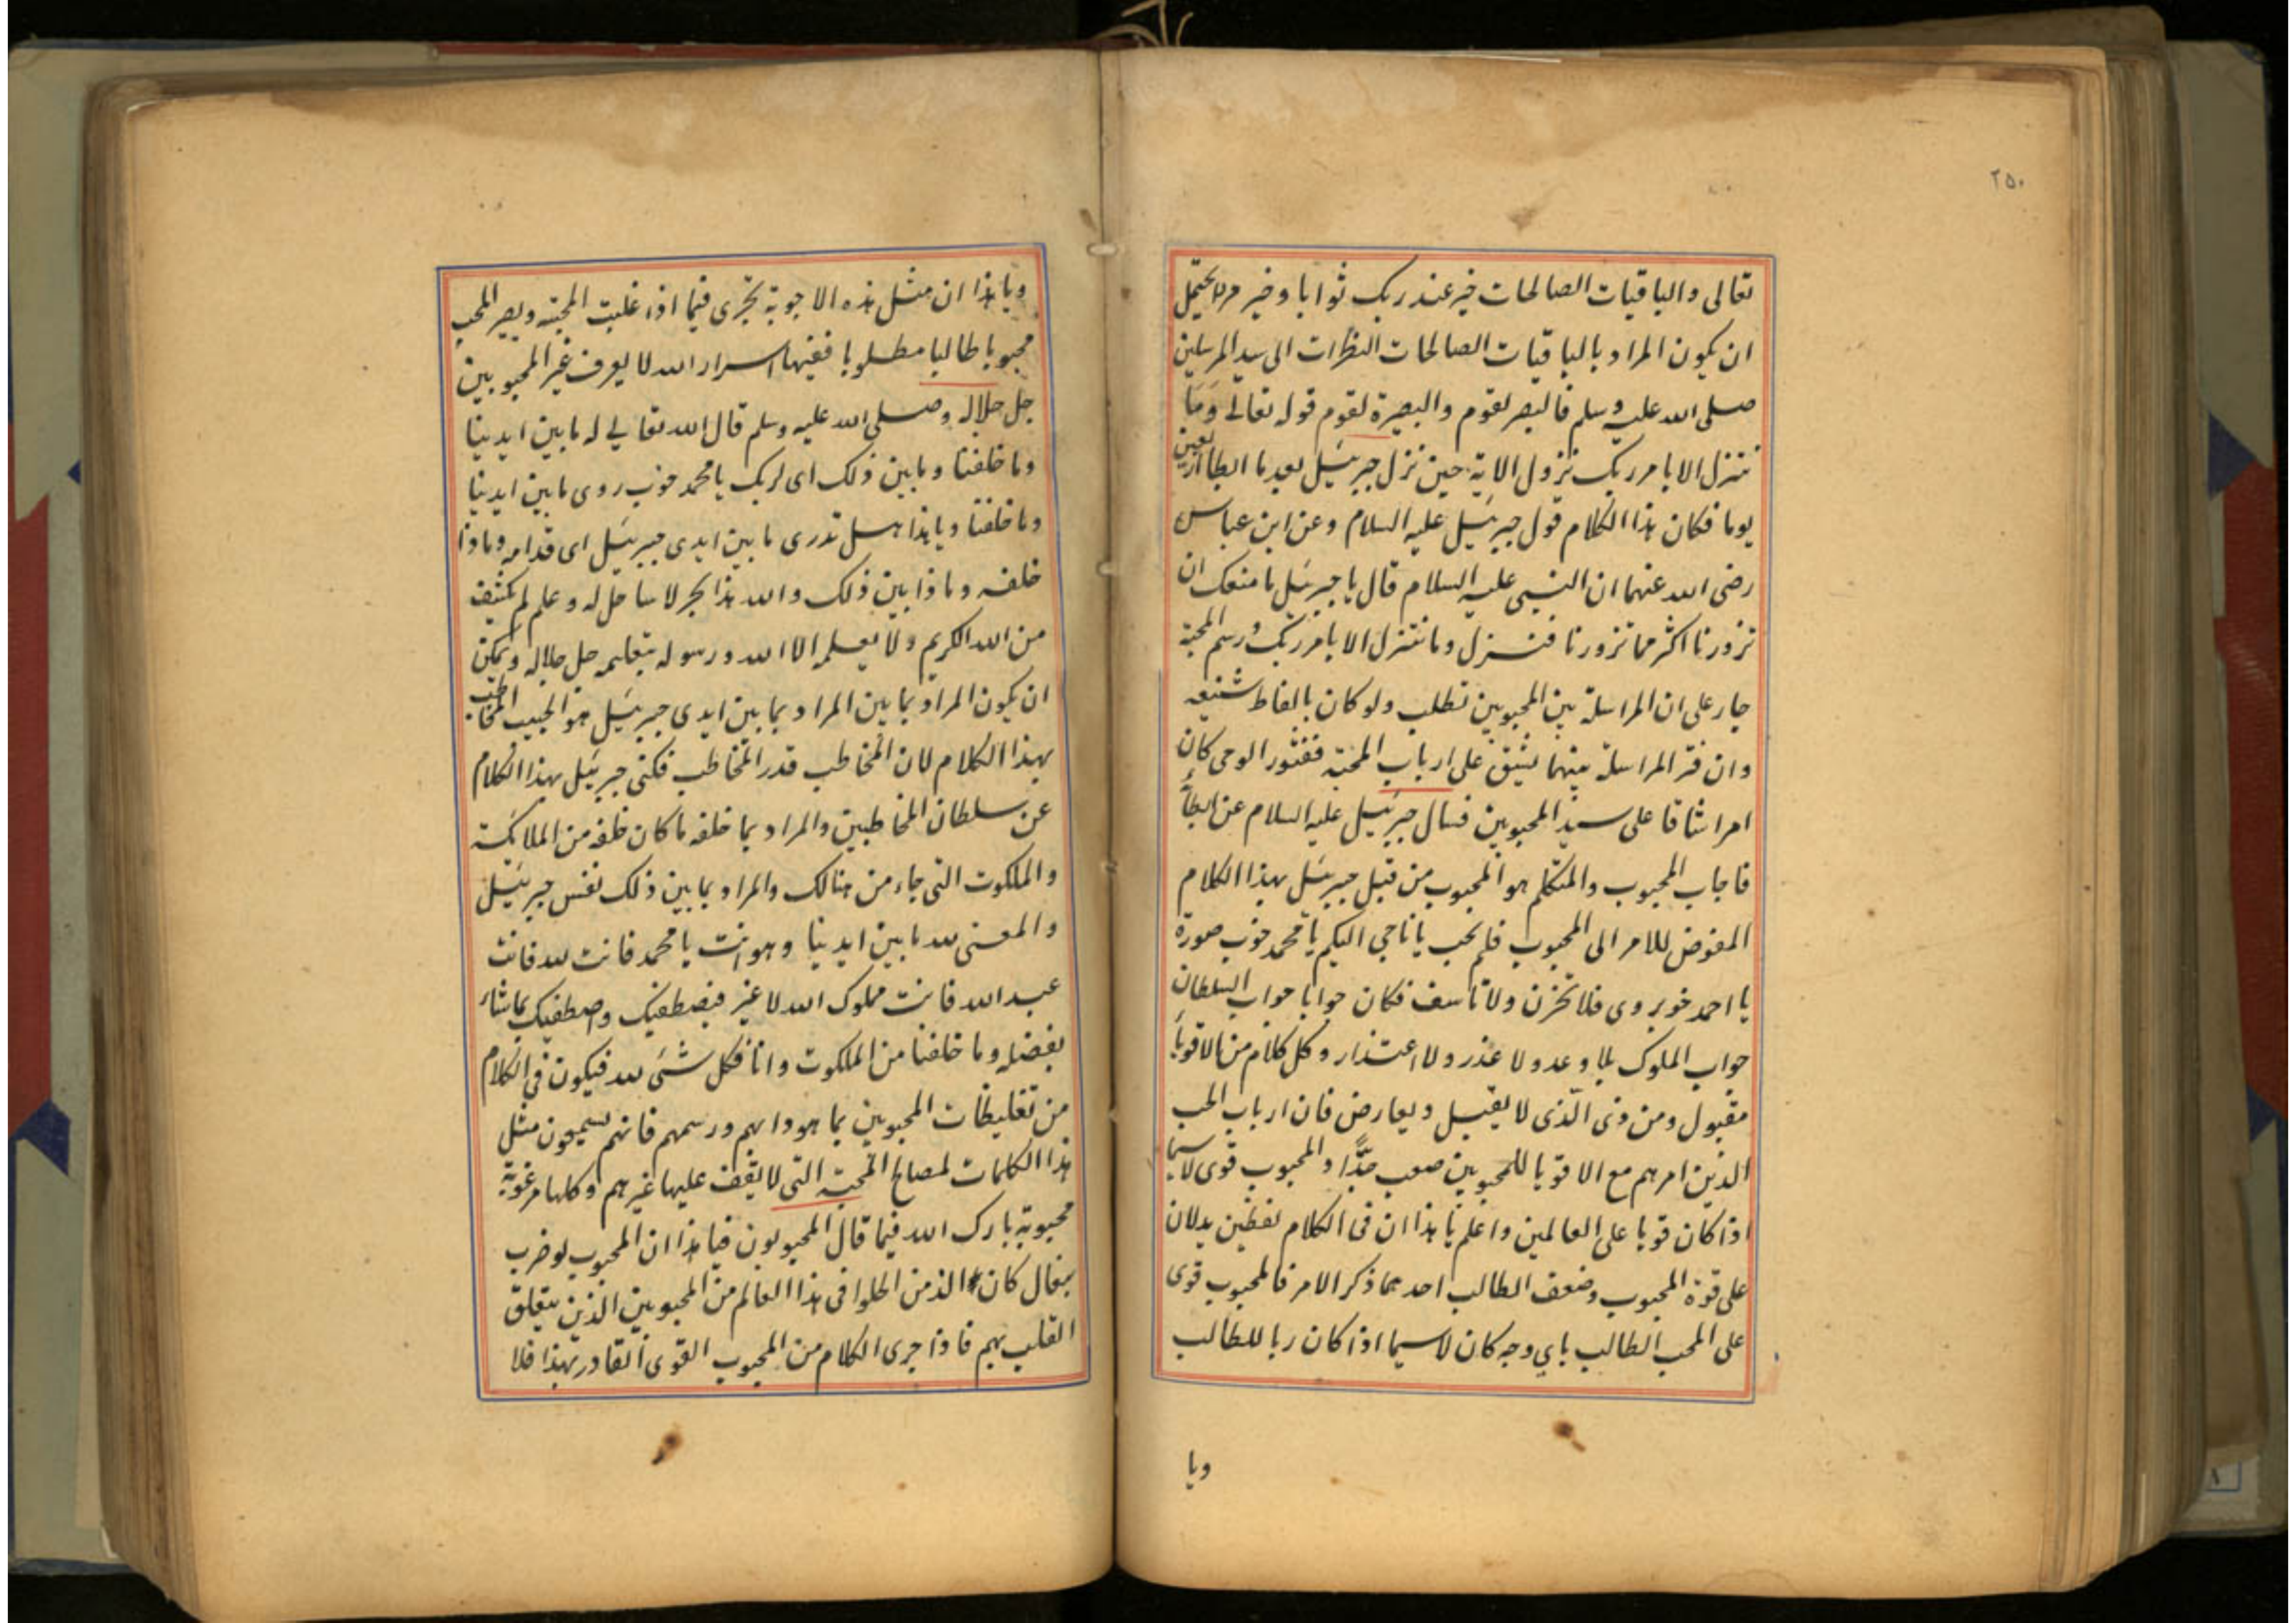 ٢٥٠
تعالى والباقيات الصالحات خير عند ربك ثوابا وخير مردا يحتمل
ان يكون المراد بالباقيات الصالحات النظرات الى سيد المرسلين
صلى الله عليه وسلم فالبصر لقوم والبصيرة لقوم قوله تعالى وَمَا
نتنزل الا بامر ربك نزول الاية حين نزل جبرئيل بعد ما ابطا اربعين
يوما فكان هذا الكلام قول جبرئيل عليه السلام وعن ابن عباس
رضى الله عنهما ان النبى عليه السلام قال يا جبرئيل ما منعك ان
تزورنا اكثر مما تزورنا فنزل وما نتنزل الا بامر ربك ورسم المحبة
جار على ان المراسلة بين المحبوبين تطلب ولو كان بالفاظ شنيعه
وان فتر المراسلة بينهما يشق على ارباب المحبة ففتور الوحى كان
امرا شاقا على سيد المحبوبين فسال جبرئيل عليه السلام عن ابطأ
فاجاب المحبوب والمتكلم هو المحبوب من قبل جبرئيل بهذا الكلام
المفوض للامر الى المحبوب فلم يجب يا ناجى اليكم يا محمد خوب صورة
يا احمد خوبروى فلا تحزن ولا تأسف فكان جوابا جواب السلطان
جواب الملوك بلا وعد ولا عذر ولا اعتذار وكل كلام من الاقويا
مقبول ومن ذى الذى لا يقبل ويعارض فان ارباب الحب
الذين امرهم مع الاقويا للمحبوبين صعب جدًّا والمحبوب قوى لاسيما
اذا كان قويا على العالمين واعلم يا هذا ان فى الكلام لفظين يدلان
على قوة المحبوب وضعف الطالب احدهما ذكر الامر فالمحبوب قوى
على المحب الطالب باي وجه كان لاسيما اذا كان ربا للطالب
ويا
ويا هذا ان مثل هذه الاجوبة تجرى فيما اذا غلبت المحبة ويصير المحب
محبوبا طالبا مطلوبا ففيها اسرار الله لا يعرف غير المحبوبين
جل جلاله وصلى الله عليه وسلم قال الله تعالى له ما بين ايدينا
وما خلفنا وما بين ذلك اى لربك يا محمد خوب روى ما بين ايدينا
وما خلفنا ويا هذا هل تدرى ما بين ايدى جبرئيل اى قدامه وماذا
خلفه وماذا بين ذلك والله هذا بحر لا ساحل له وعلم لم يكشف
من الله الكريم ولا يعلمه الا الله ورسوله بتعليمه جل جلاله ويمكن
ان يكون المراد بما بين المراد بما بين ايدى جبرئيل هو الحبيب المخاطب
بهذا الكلام لان المخاطب قدر المخاطب فكنى جبرئيل بهذا الكلام
عن سلطان المخاطبين والمراد بما خلفه ما كان خلفه من الملائكة
والملكوت التى جاء من هنالك والمراد بما بين ذلك نفس جبرئيل
والمعنى لله ما بين ايدينا وهو انت يا محمد فانت لله فانت
عبد الله فانت مملوك الله لا غير فيصطفيك واصطفيك بما شاء
بفضله وما خلفنا من الملكوت وانا فكل شىء لله فيكون فى الكلام
من تغليظات المحبوبين بما هو دابهم ورسمهم فانهم يسمعون مثل
هذا الكلمات لمصالح المحبة التى لا يقف عليها غيرهم وكلها مرغوبة
محبوبة بارك الله فيما قال المحبوبون فيا هذا ان المحبوب لو ضرب
بنعال كان الذ من الحلوا فى هذا العالم من المحبوبين الذين يتعلق
القلب بهم فاذا جرى الكلام من المحبوب القوى القادر بهذا فلا